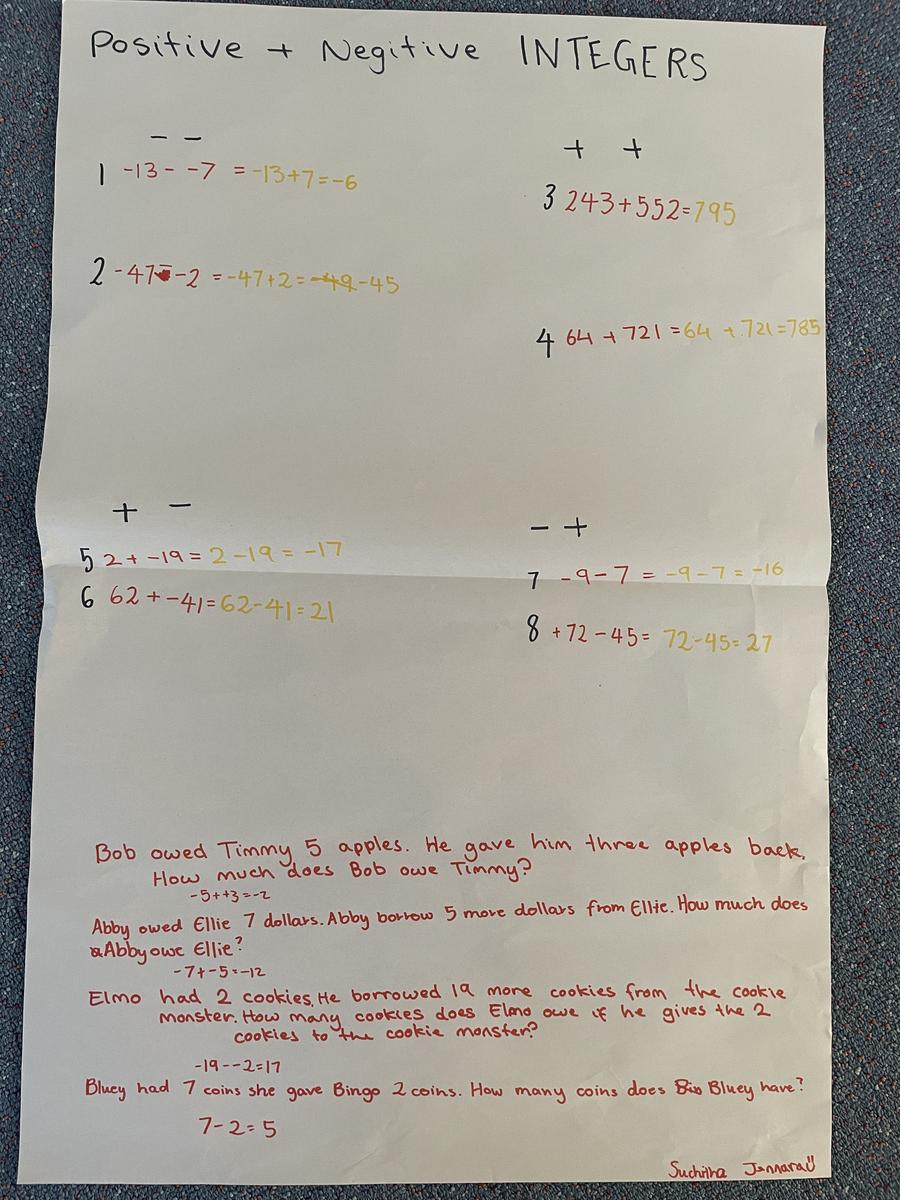 Positive + Negitive INTEGERS
− −
1 -13 - -7 = -13+7=-6
2 -47 - -2 = -47+2= -49 -45
+ +
3 243+552=795
4 64 + 721 =64 + 721=785
+ −
5 2 + -19 = 2 -19 = -17
6 62 + -41=62-41=21
− +
7 -9-7 = -9-7 = -16
8 +72-45= 72-45=27
Bob owed Timmy 5 apples. He gave him three apples back.
How much does Bob owe Timmy?
-5++3=-2
Abby owed Ellie 7 dollars. Abby borrow 5 more dollars from Ellie. How much does
Abby owe Ellie?
-7+-5=-12
Elmo had 2 cookies. He borrowed 19 more cookies from the cookie
monster. How many cookies does Elmo owe if he gives the 2
cookies to the cookie monster?
-19--2=17
Bluey had 7 coins she gave Bingo 2 coins. How many coins does Bluey have?
7-2=5
Suchitha